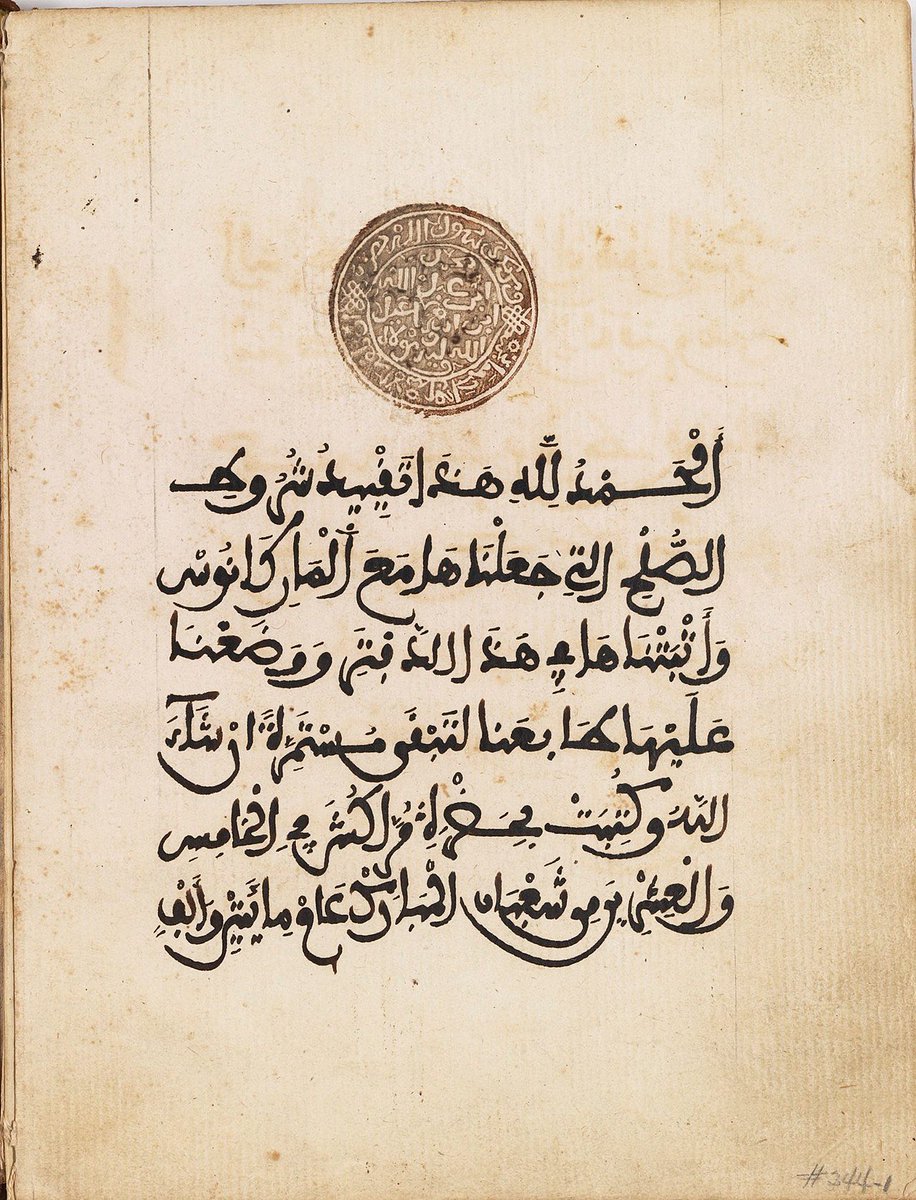 اَلْحَمْدُ لِلَّهِ هَذَا تَقْيِيدُ شُرُوطِ
الصُّلْحِ التِي جَعَلْنَاهَا مَعَ اَلْمَارِكَانُوسْ
وَأَثْبَتْنَاهَا فِي هَذَا الدَّفْتَرِ وَوَضَعْنَا
عَلَيْهَا طَابِعَنَا لِتَبْقَى مُسْتَمِرَّةً اِنْ شَاءَ
اللهُ وَكُتِبَتْ بِحَضْرَةِ مُرَّاكُشَ فِي الْخَامِسِ
وَالْعِشْرِينَ مِنْ شَعْبَانَ الْمُبَارَكْ عَامَ مِائَتَيْنِ وَأَلْفٍ
#344-1